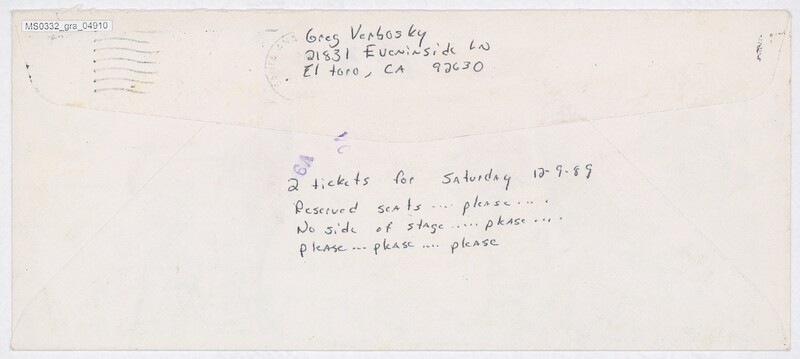 MS0332_gra_04910
Greg Verbosky
21831 Eveninside LN
El toro, CA 92630
2 tickets for Saturday 12-9-89
Reserved seats .... please ....
No side of stage ..... please ....
please ... please .... please